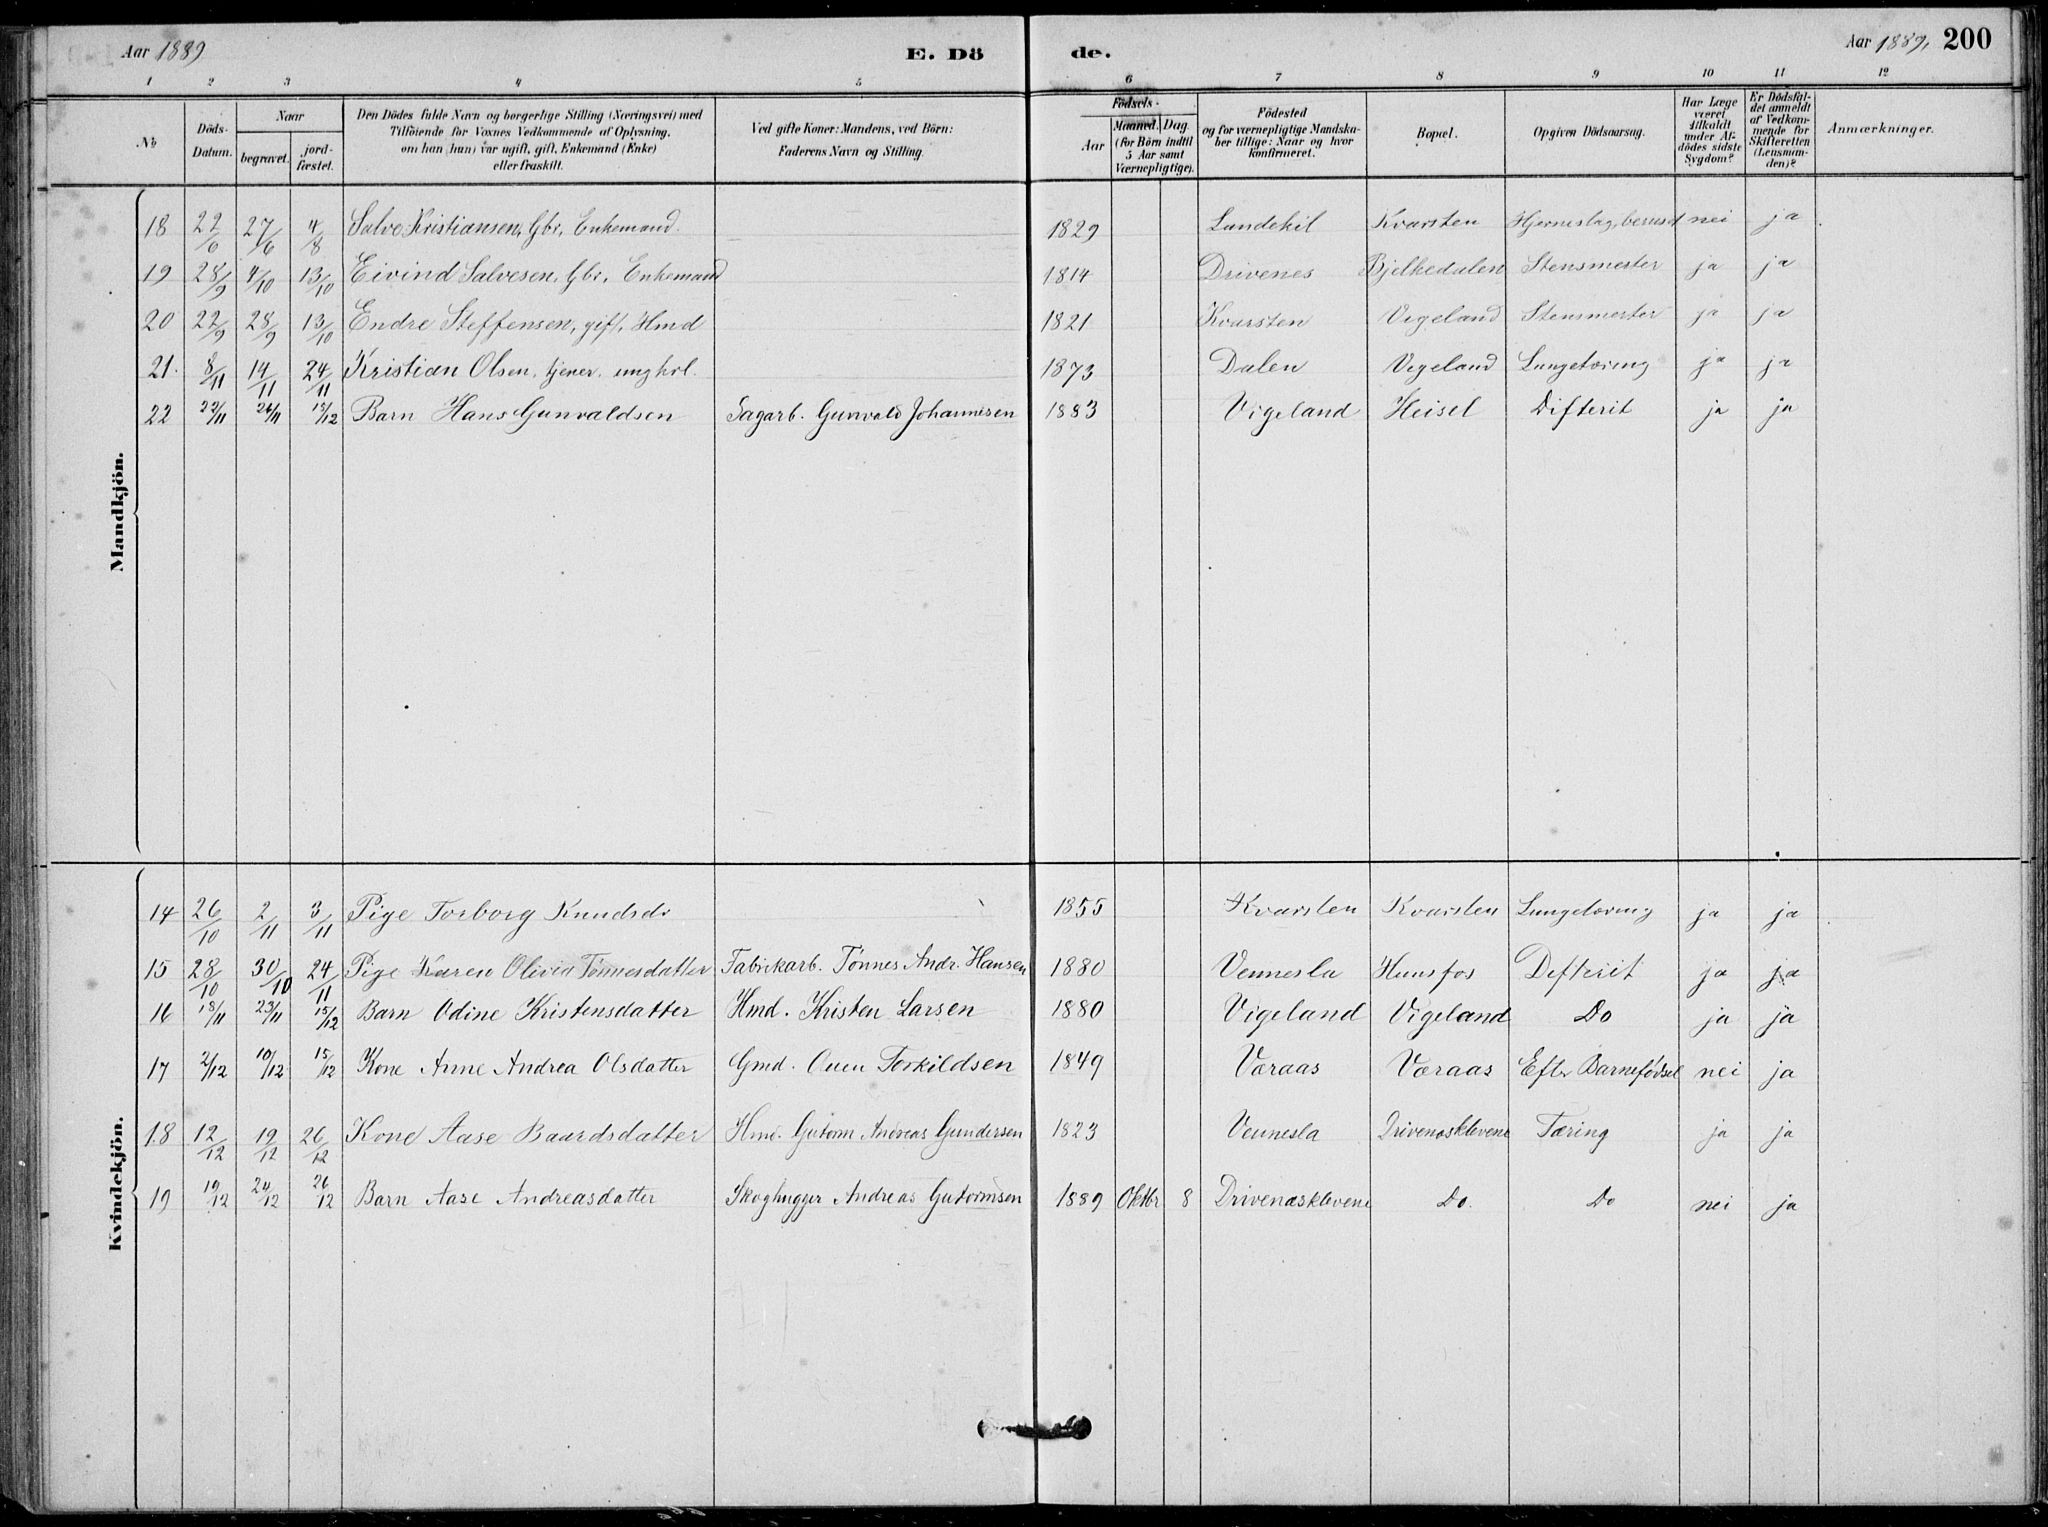 Aar 1889 E. Dö de. Aar 1889, 200
1 2 3 4 5 6 7 8 9 10 11 12
No
Döds-Datum.
Naar
begravet.
jord-fæstet.
Den Dödes fulde Navn og borgerlige Stilling (Næringsvei) med
Tilföiende for Voxnes Vedkommende af Oplysning,
om han (hun) var ugift, gift, Enkemand (Enke)
eller fraskilt.
Ved gifte Koner: Mandens, ved Börn:
Faderens Navn og Stilling.
Födsels-
Aar
Maaned. Dag
(for Börn indtil
5 Aar samt
Værnepligtige).
Födested
og for værnepligtige Mandska-
ber tillige: Naar og hvor
konfirmeret.
Bopæl.
Opgiven Dödsaarsag.
Har Læge
været
tilkaldt
under Af-
dödes sidste
Sygdom?
Er Dödsfal-
det anmeldt
af Vedkom-
mende for
Skifteretten
(Lensman-
den)?
Anmærkninger.
Mandkjön.
18 22/6 27/6 4/8 Salve Kristiansen, Gbr, Enkemand. 1829 Lundekil Kvarsten Hjerneslag, beruset nei ja
19 28/9 4/10 13/10 Eivind Salvesen, Gbr, Enkemand 1814 Drivenes Bjelkedalen Stensmerter ja ja
20 22/9 28/9 13/10 Endre Steffensen, gift, Hmd 1821 Kvarsten Vigeland Stensmerter ja ja
21. 8/11 14/11 24/11 Kristian Olsen, tjener, ungkrl. 1873 Dalen Vigeland Lungetæring ja ja
22 22/11 26/11 15/12 Barn Hans Gunvaldsen Sagarb. Gunvald Johannesen 1883 Vigeland Heisel Difterit ja ja
Kvindekjön.
14 26/10 2/11 3/11 Pige Torborg Knudsdr 1855 Kvarsten Kvarsten Lungetæring ja ja
15 28/10 30/10 24/11 Pige Karen Olivia Tönnesdatter Fabrikarb. Tönnes Andr. Hansen 1880 Vennesla Hunsfos Defterit ja ja
16 18/11 23/11 15/12 Barn Odine Kristensdatter Hmd. Kristen Larsen 1880 Vigeland Vigeland Do ja ja
17 2/12 10/12 15/12 Kone Anne Andrea Olsdatter Gmd. Ouen Torkildsen 1849 Væraas Væraas Efter Barnefødsel nei ja
18 12/12 19/12 26/12 Kone Aase Baardsdatter Hmd. Gutorm Andreas Gundersen 1823 Vennesla Drivenæsklevene Tæring ja ja
19 19/12 24/12 26/12 Barn Aase Andreasdatter Skoghugger Andreas Gutormsen 1889 Oktbr 8 Drivenæsklevene Do. Do nei ja